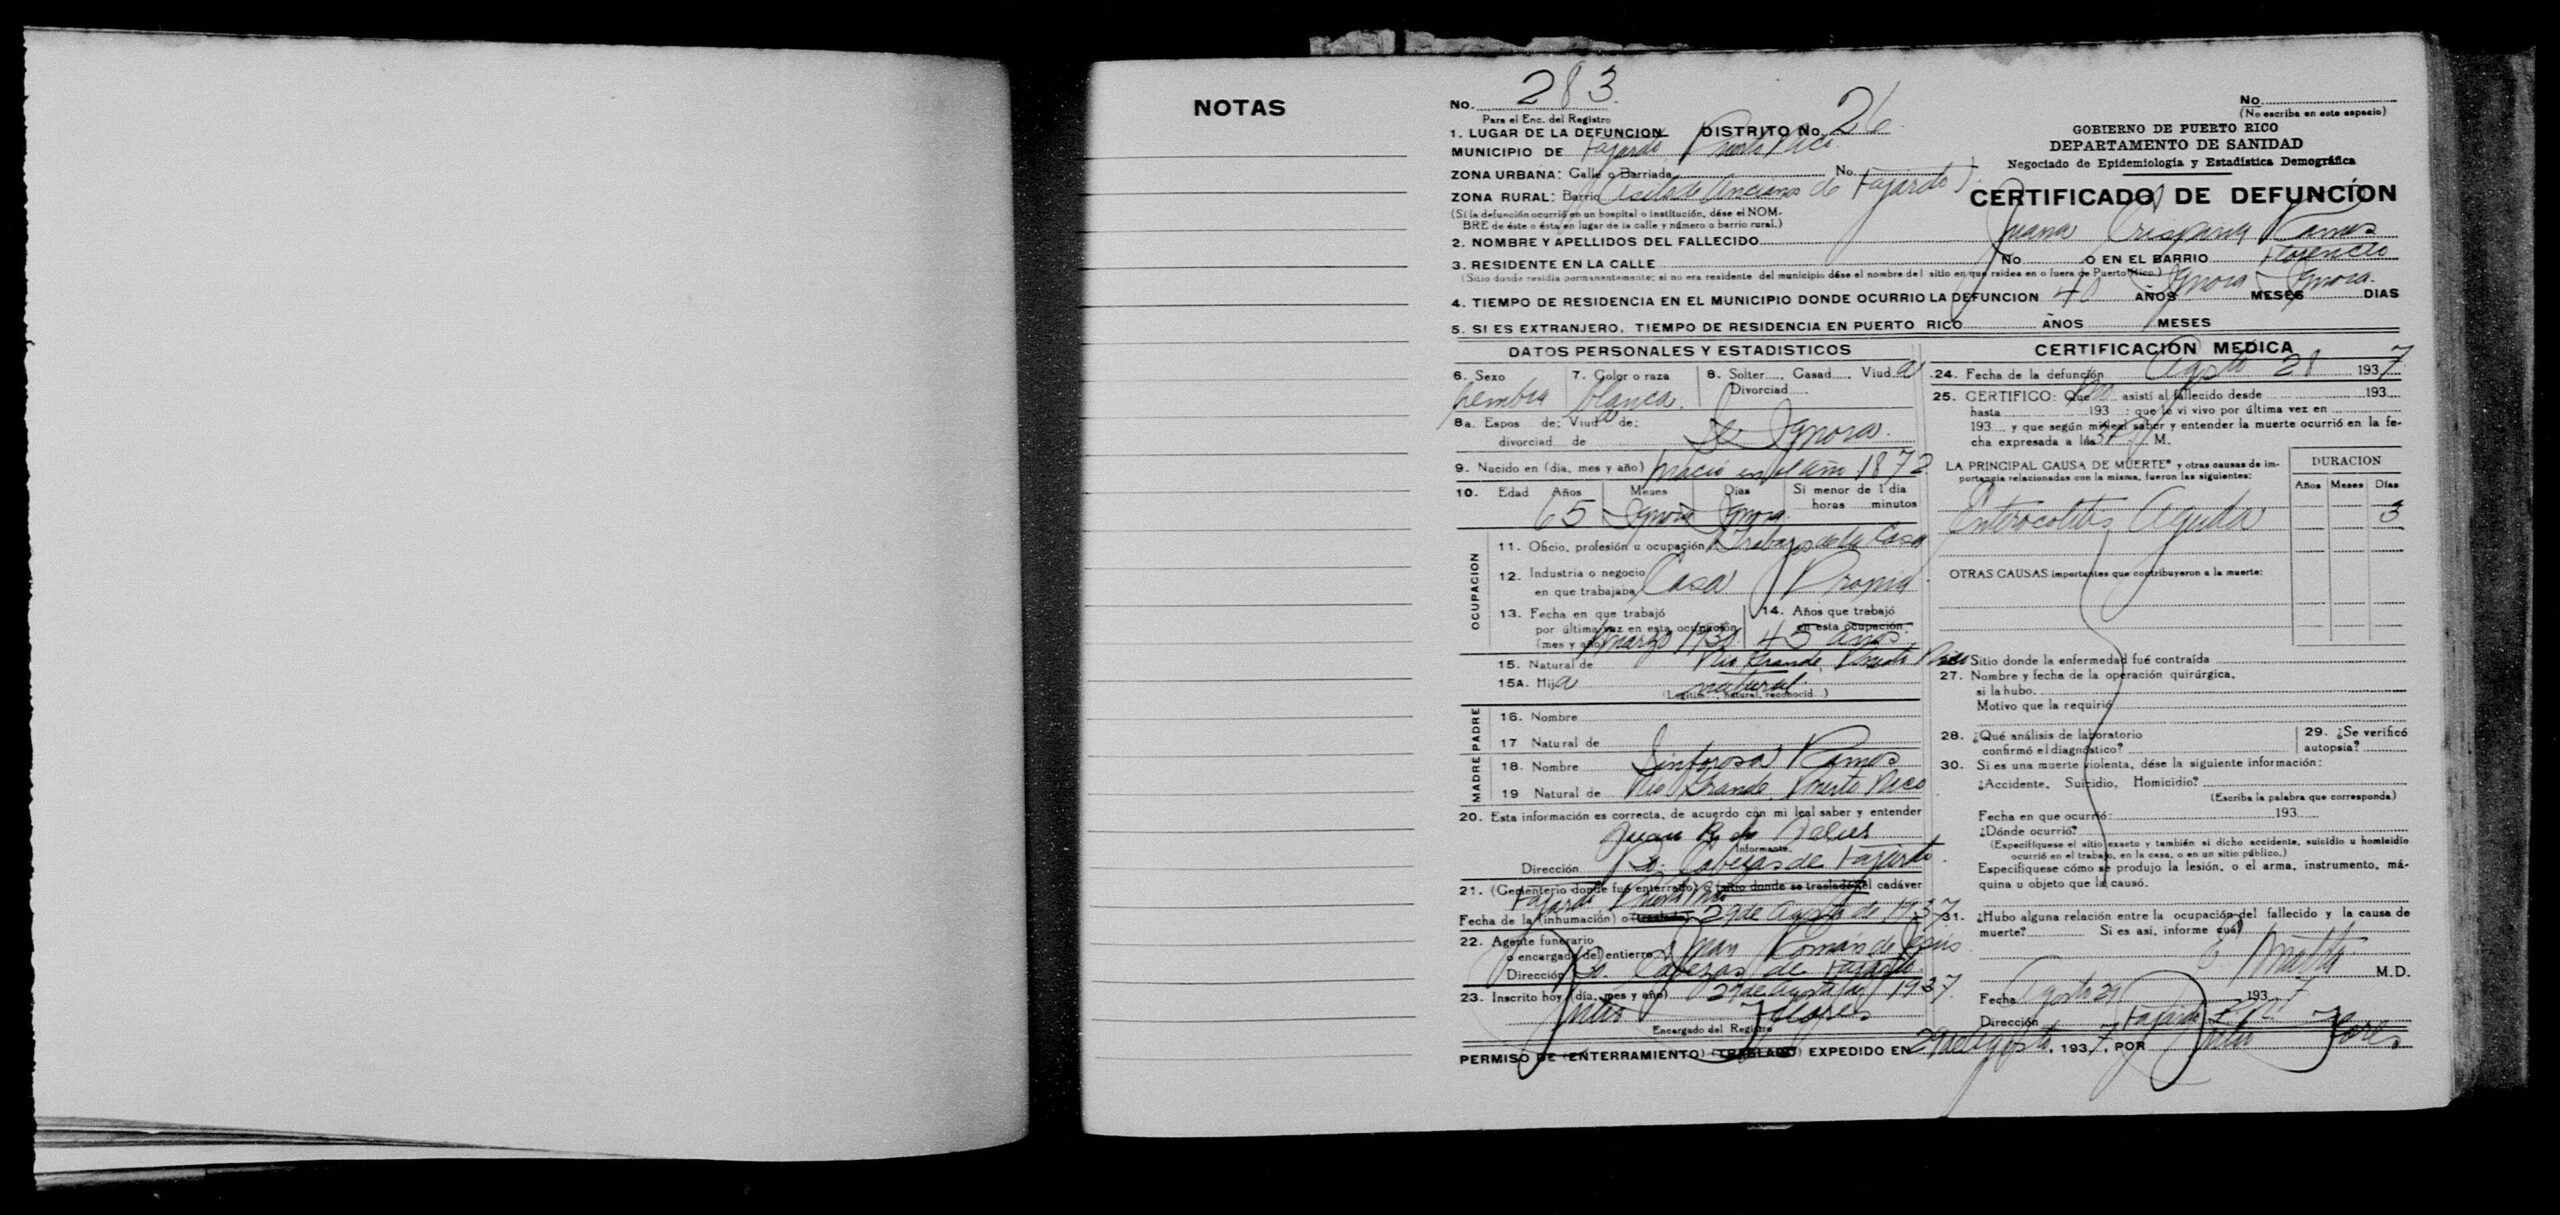 NOTAS
No. 283
Para el Enc. del Registro
1. LUGAR DE LA DEFUNCION DISTRITO No. 26
MUNICIPIO DE Fajardo, Puerto Rico
ZONA URBANA: Calle o Barriada No.
ZONA RURAL: Barrio (Asilo de Ancianos de Fajardo)
(Si la defunción ocurrió en un hospital o institución, dése el NOM-
BRE de éste o ésta en lugar de la calle y número o barrio rural.)
No.
(No escriba en este espacio)
GOBIERNO DE PUERTO RICO
DEPARTAMENTO DE SANIDAD
Negociado de Epidemiología y Estadística Demográfica
CERTIFICADO DE DEFUNCION
2. NOMBRE Y APELLIDOS DEL FALLECIDO Juana Crispina Ramos
3. RESIDENTE EN LA CALLE No O EN EL BARRIO Florencio
(Sitio donde residía permanentemente; si no era residente del municipio dése el nombre del sitio en que rsidea en o fuera de Puerto Rico.)
4. TIEMPO DE RESIDENCIA EN EL MUNICIPIO DONDE OCURRIO LA DEFUNCION 40 AÑOS Ignora MESES Ignora DIAS
5. SI ES EXTRANJERO, TIEMPO DE RESIDENCIA EN PUERTO RICO AÑOS MESES
DATOS PERSONALES Y ESTADISTICOS
6. Sexo 7. Color o raza 8. Solter Casad Viuda
hembra blanca. Divorciad
8a. Espos de: Viuda de:
divorciad de Se Ignora.
9. Nacido en (día, mes y año) Nació en el año 1872
10. Edad Años Meses Días Si menor de 1 día
65 Ignora Ignora. horas minutos
OCUPACION
11. Oficio, profesión u ocupación Trabajos de la Casa
12. Industria o negocio
en que trabajaba Casa Propia.
13. Fecha en que trabajó 14. Años que trabajó
por última vez en esta ocupación en esta ocupación.
(mes y año) Marzo 1930 45 años
15. Natural de Rio Grande, Puerto Rico
15A. Hija natural.
(Legítim , natural, reconocid )
PADRE
16. Nombre
17 Natural de
MADRE
18. Nombre Sinforosa Ramos
19 Natural de Rio Grande, Puerto Rico
20. Esta información es correcta, de acuerdo con mi leal saber y entender
Juan R. de Jesus
Informante.
Dirección Bo. Cabezas de Fajardo.
21. (Cementerio donde fué enterrado) o (sitio donde se trasladó) el cadáver
Fajardo Puerto Rico
Fecha de la (inhumación) o (traslado) 29 de Agosto de 1937
22. Agente funerario
o encargado del entierro Juan Román de Jesús
Dirección Bo. Cabezas de Fajardo.
23. Inscrito hoy (día, mes y año) 29 de Agosto de 1937.
Julio Flores
Encargado del Registro
CERTIFICACION MEDICA
24. Fecha de la defunción Agosto 28 1937
25. CERTIFICO: Que no asistí al fallecido desde 193
hasta 193 : que le ví vivo por última vez en
193 y que según mi leal saber y entender la muerte ocurrió en la fe-
cha expresada a las M.
LA PRINCIPAL CAUSA DE MUERTE* y otras causas de im-
portancia relacionadas con la misma, fueron las siguientes:
DURACION
Años Meses Días
Enterocolitis Aguda 3
OTRAS CAUSAS importantes que contribuyeron a la muerte:
Sitio donde la enfermedad fué contraída
27. Nombre y fecha de la operación quirúrgica,
si la hubo.
Motivo que la requirió
28. ¿Qué análisis de laboratorio
confirmó el diagnóstico?
29. ¿Se verificó
autopsia?
30. Si es una muerte violenta, dése la siguiente información:
¿Accidente, Suicidio, Homicidio?
(Escriba la palabra que corresponda)
Fecha en que ocurrió: 193
¿Dónde ocurrió?
(Especifíquese el sitio exacto y también si dicho accidente, suicidio u homicidio
ocurrió en el trabajo, en la casa, o en un sitio público.)
Especifíquese cómo se produjo la lesión, o el arma, instrumento, má-
quina u objeto que la causó.
31. ¿Hubo alguna relación entre la ocupación del fallecido y la causa de
muerte? Si es así, informe cuál
M.D.
Fecha Agosto 29 1937
Dirección Fajardo P.R.
PERMISO DE (ENTERRAMIENTO) (TRASLADO) EXPEDIDO EN 29 de Agosto, 1937, POR Julio Flores